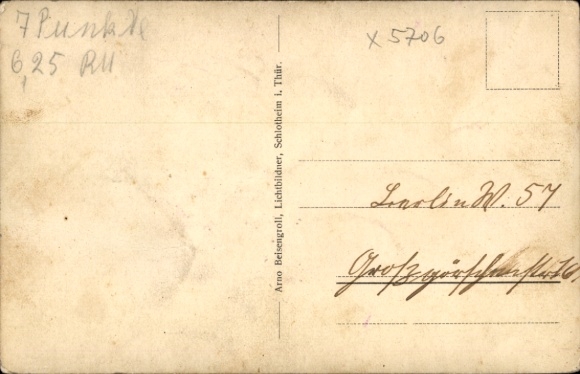 7 Punkte
6,25 RM
x 5706
Arno Beisengroll, Lichtbildner, Schlotheim i. Thür.
Berlin W. 57
Großgörschenstr. 16